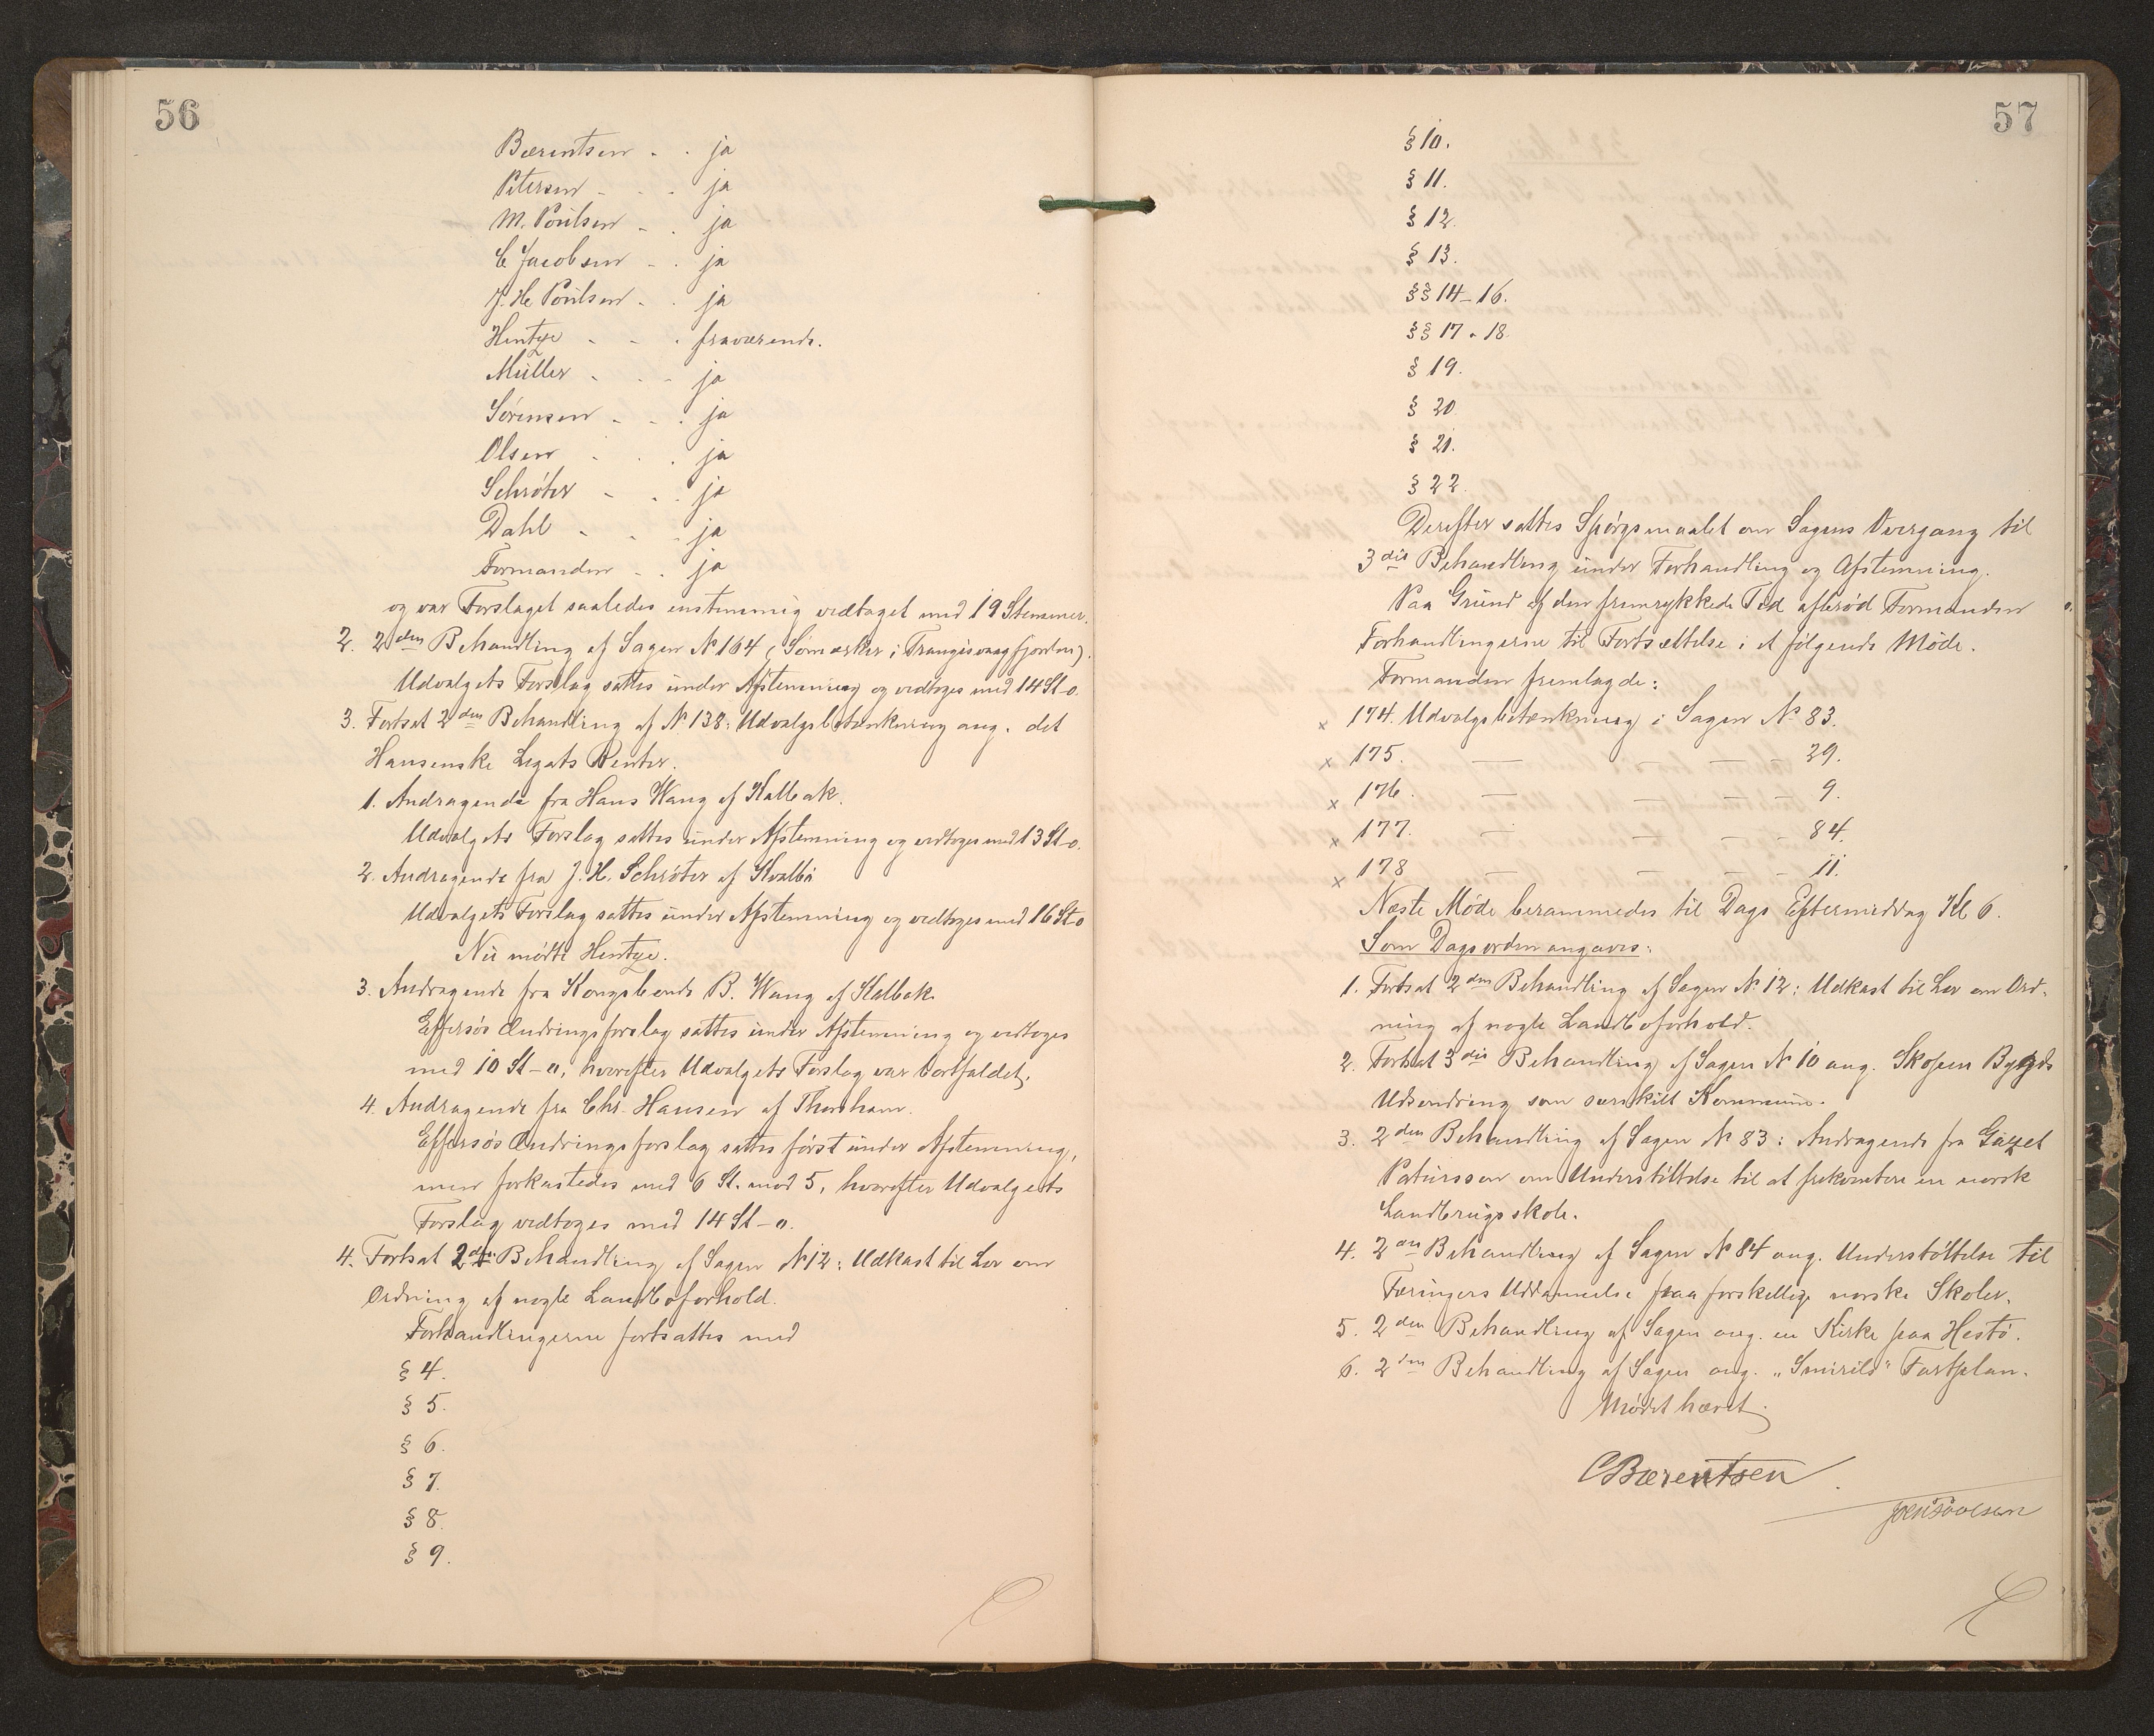 56
Bærentsen - - ja
Petersen - - - ja
M. Poulsen - - ja
C Jacobsen - - ja
J. He Poulsen - - ja
Hentze - - - fraværende.
Müller - - - ja
Sørensen - - - ja
Olsen - - - ja
Schrøter - - - ja
Dahl - - - ja
Formanden - - ja
og var Forslaget saaledes enstemmig vedtaget med 19 Stemmer.
2. 2den Behandling af Sagen № 164 (Sømærker i Trangisvaagfjorden).
Udvalgets Forslag sattes under Afstemning og vedtoges med 14 St-o.
3. Fortsat 2den Behandling af № 138: Udvalgsbetænkning ang. det
Hansenske Legats Renter.
1. Andragende fra Hans Wang af Kalbak.
Udvalgets Forslag sattes under Afstemning og vedtoges med 13 St-o.
2. Andragende fra J. H. Schrøter af Kvalbø
Udvalgets Forslag sattes under Afstemning og vedtoges med 16 St o
Nu mødte Hentze.
3. Andragende fra Kongsbonde B. Wang af Kalbak.
Effersøs Ændringsforslag sattes under Afstemning og vedtoges
med 10 St-o, hvorefter Udvalgets Forslag var bortfaldet.
4. Andragende fra Chr. Hansen af Thorshavn.
Effersøs Ændringsforslag sattes først under Afstemning,
men forkastedes med 6 St. mod 5, hvorefter Udvalgets
Forslag vedtoges med 14 St-o.
4. Fortsat 2den Behandling af Sagen № 12: Udkast til Lov om
Ordning af nogle Landboforhold.
Forhandlingerne fortsattes med
§ 4.
§ 5.
§ 6.
§ 7.
§ 8.
§ 9.
57
§ 10.
§ 11.
§ 12.
§ 13.
§§ 14-16.
§§ 17 - 18.
§ 19.
§ 20
§ 21.
§ 22.
Derefter sattes Spørgsmaalet om Sagens Overgang til
3die Behandling under Forhandling og Afstemning.
Paa Grund af den fremrykkede Tid afbrød Formanden
Forhandlingerne til Fortsættelse i et følgende Møde.
Formanden fremlagde:
x 174. Udvalgsbetænkning i Sagen № 83.
x 175. — — — - 29.
x 176. — — — - 9.
x 177. — — — - 84.
x 178 — — — - 11.
Næste Møde berammedes til Dags Eftermiddag Kl 6.
Som Dagsorden angaves:
1. Fortsat 2den Behandling af Sagen № 12: Udkast til Lov om Ord-
ning af nogle Landboforhold.
2. Fortsat 3die Behandling af Sagen № 10 ang. Skopen Bygds
Udsondring som særskilt Kommune.
3. 2den Behandling af Sagen № 83: Andragende fra Gazet
Patursson om Understøttelse til at frekventere en norsk
Landbrugsskole.
4. 2den Behandling af Sagen № 84 ang. Understøttelse til
Færingers Uddannelse paa forskellige norske Skoler.
5. 2den Behandling af Sagen ang. en Kirke paa Hestø.
6. 2den Behandling af Sagen ang. „Smirils" Fartplan.
Mødet hævet.
CBærentsen